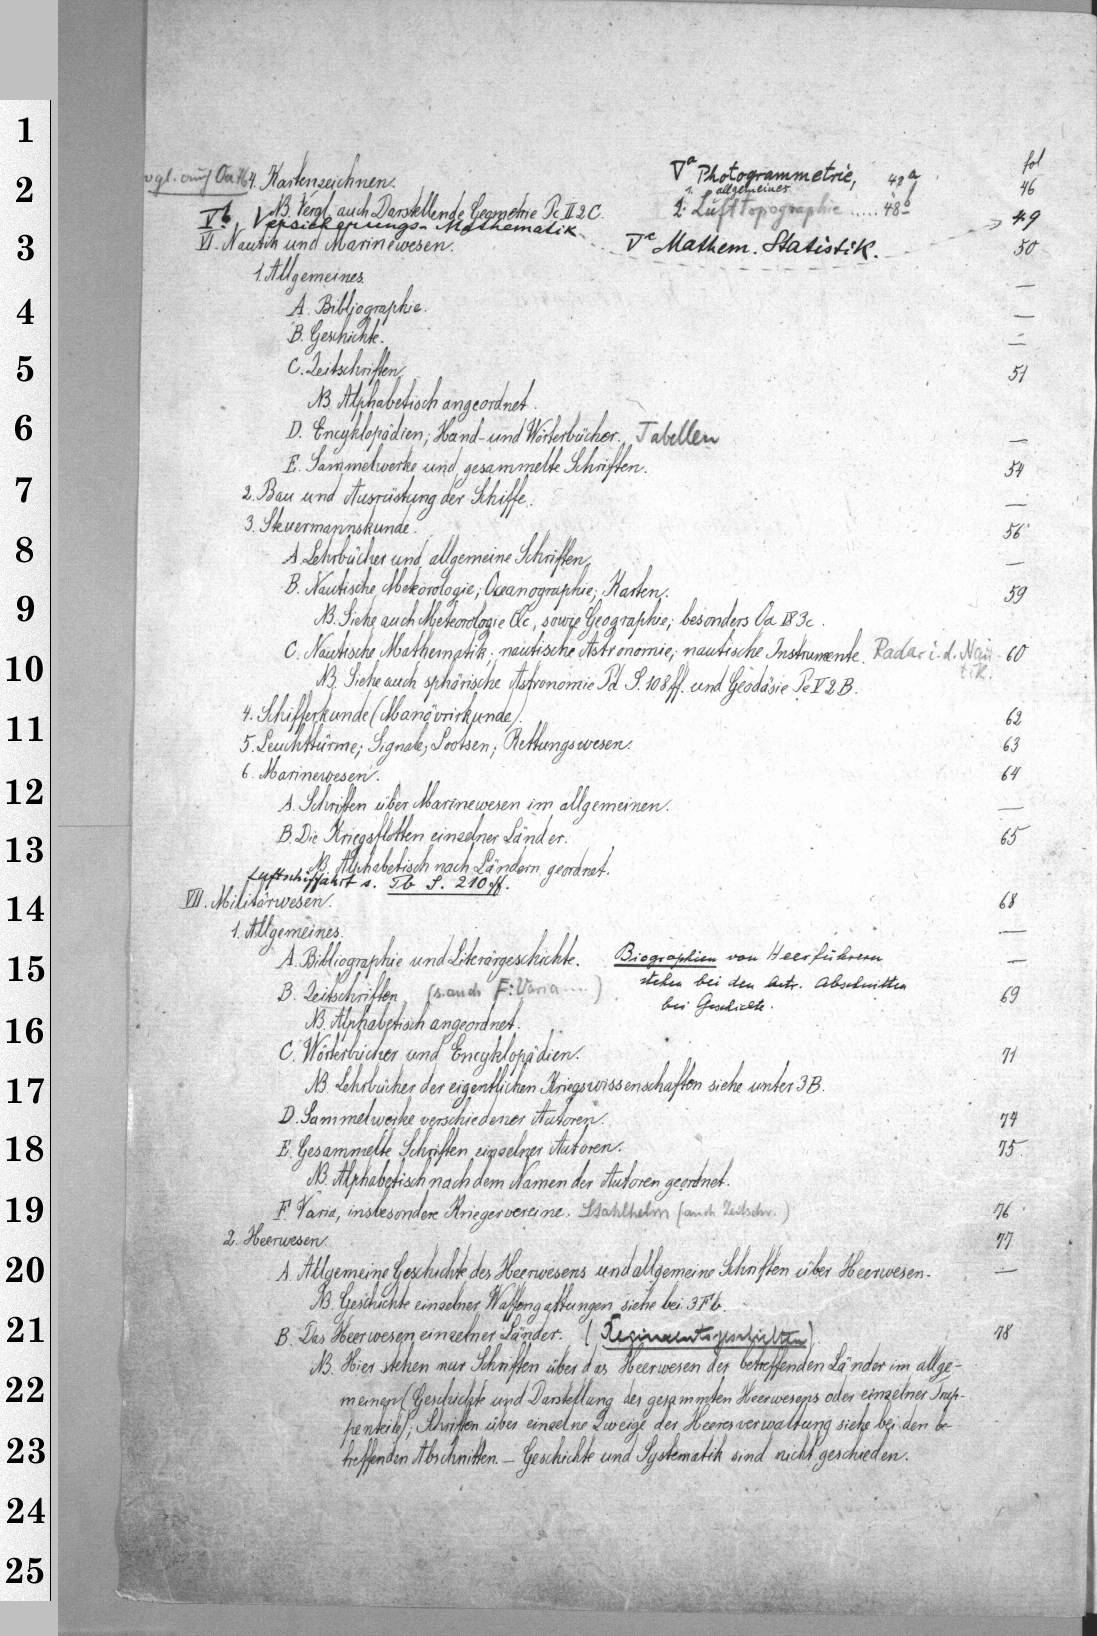 fol
vgl. auch Oa 16 4. Kartenzeichnen. Vᵃ Photogrammetrie, 42ᵃ 46
1. allgemeines
NB. Vergl. auch Darstellende Geometrie Pc II 2 C. 2. Lufttopographie ..... 48ᵃ
Vᵇ. Versicherungs-Mathematik 49
VI. Nautik und Marinewesen. Vᶜ Mathem. Statistik. 50
1. Allgemeines. —
A. Bibliographie. —
B. Geschichte. —
C. Zeitschriften. 51
NB. Alphabetisch angeordnet.
D. Encyklopädien; Hand- und Wörterbücher. Tabellen —
E. Sammelwerke und gesammelte Schriften. 54
2. Bau und Ausrüstung der Schiffe. —
3. Steuermannskunde. 56
A. Lehrbücher und allgemeine Schriften. —
B. Nautische Meteorologie; Oceanographie; Karten. 59
NB. Siehe auch Meteorologie Oc, sowie Geographie; besonders Oa III 3c.
C. Nautische Mathematik; nautische Astronomie; nautische Instrumente. Radar i. d. Nau- 60
tik.
NB. Siehe auch sphärische Astronomie Pd S. 108 ff. und Geodäsie Pe V 2 B.
4. Schifferkunde (Manövrirkunde). 62
5. Leuchttürme; Signale; Lootsen; Rettungswesen. 63
6. Marinewesen. 64
A. Schriften über Marinewesen im allgemeinen. —
B. Die Kriegsflotten einzelner Länder. 65
NB. Alphabetisch nach Ländern geordnet.
Luftschiffahrt s. Tb S. 210 ff.
VII. Militärwesen. 68
1. Allgemeines. —
A. Bibliographie und Literärgeschichte. Biographien von Heerführern —
stehen bei den betr. Abschnitten
B. Zeitschriften. (s. auch F: Varia ....) 69
bei Geschichte.
NB. Alphabetisch angeordnet.
C. Wörterbücher und Encyklopädien. 71
NB. Lehrbücher der eigentlichen Kriegswissenschaften siehe unter 3 B.
D. Sammelwerke verschiedener Autoren. 74
E. Gesammelte Schriften einzelner Autoren. 75
NB. Alphabetisch nach dem Namen der Autoren geordnet.
F. Varia, insbesondere Kriegervereine. Stahlhelm (auch Zeitschr.) 76
2. Heerwesen. 77
A. Allgemeine Geschichte des Heerwesens und allgemeine Schriften über Heerwesen. —
NB. Geschichte einzelner Waffengattungen siehe bei 3 F b.
B. Das Heerwesen einzelner Länder. (Regimentsgeschichten) 78
NB. Hier stehen nur Schriften über das Heerwesen der betreffenden Länder im allge-
meinen (Geschichte und Darstellung des gesammten Heerwesens oder einzelner Trup-
penteile); Schriften über einzelne Zweige der Heeresverwaltung siehe bei den be-
treffenden Abschnitten. — Geschichte und Systematik sind nicht geschieden.
1
2
3
4
5
6
7
8
9
10
11
12
13
14
15
16
17
18
19
20
21
22
23
24
25